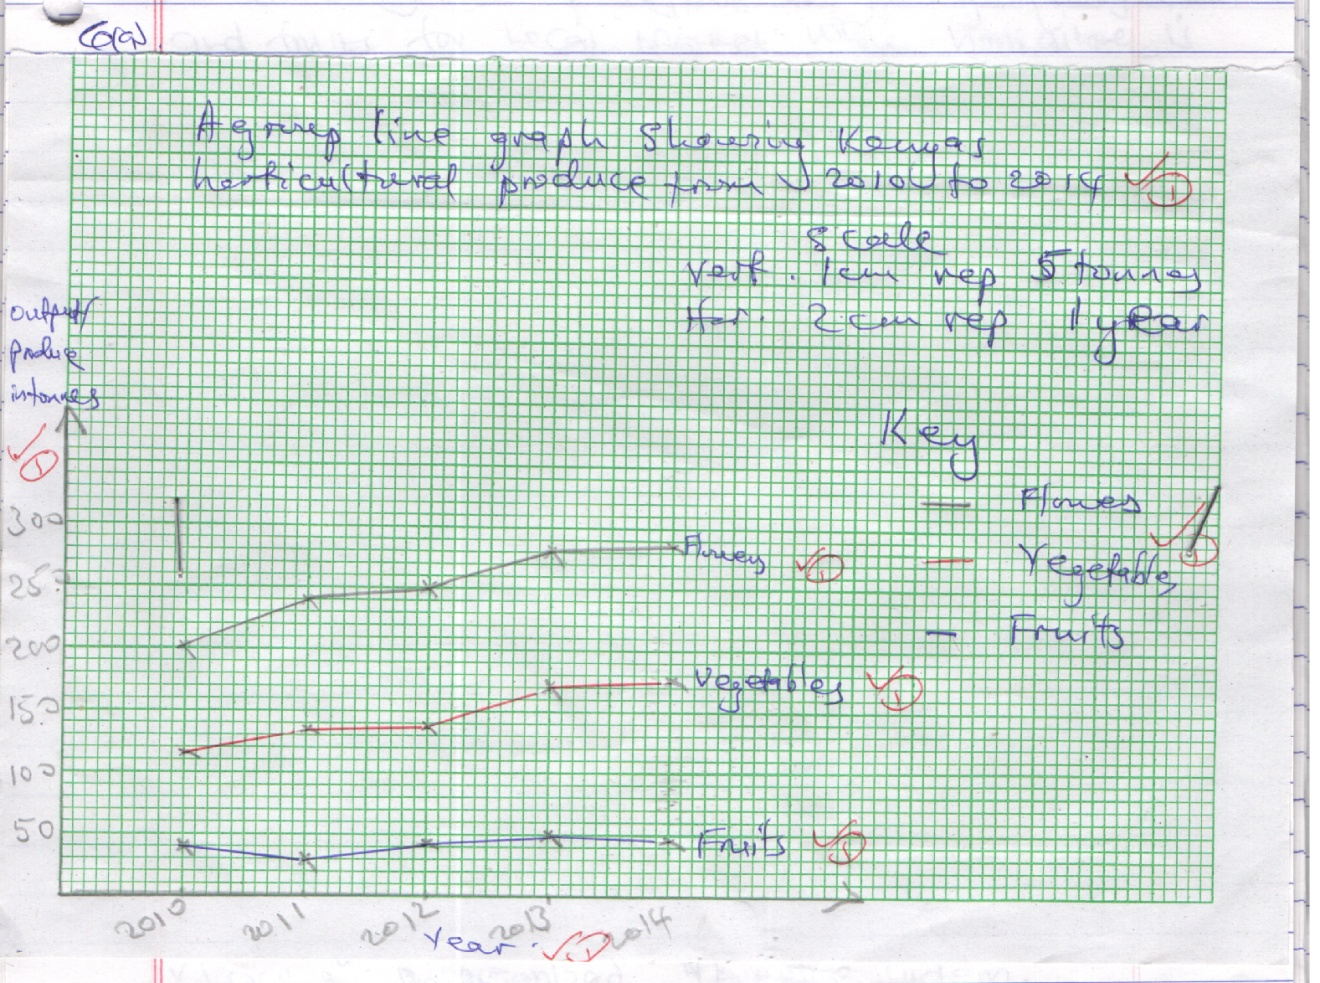 6(a)
A group line graph showing Kenyas
horticultural produce from 2010 to 2014
1
Scale
Vert. 1cm rep 5 tonnes
Hor. 2cm rep 1 year
output/
produce
in tonnes
1
Key
Flowes
Vegetables
1
Fruits
300
250
200
150
100
50
Flowers
1
Vegetables
1
Fruits
1
2010
2011
2012
2013
2014
Year.
1